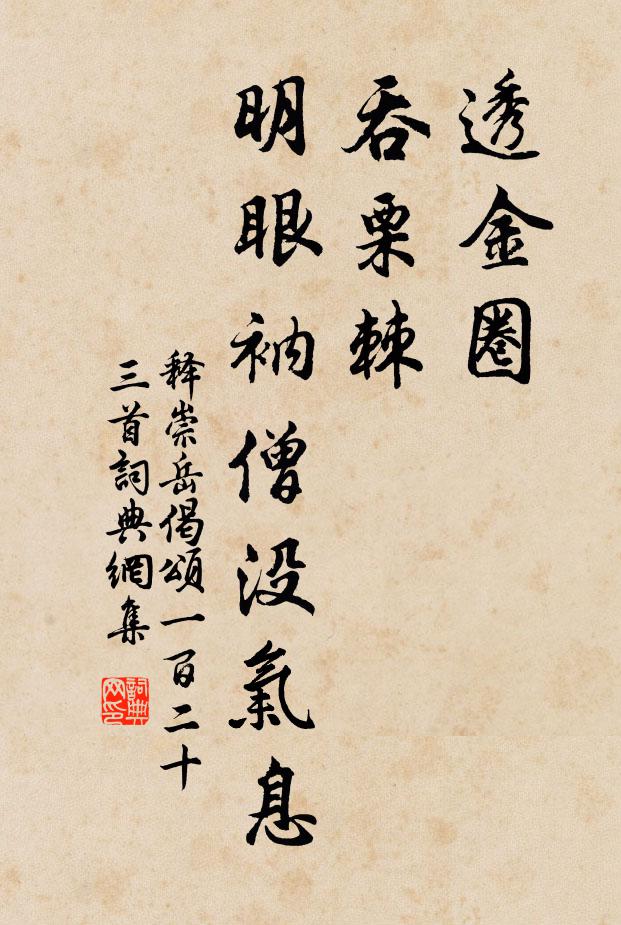 透金圈
吞栗棘
明眼衲僧沒氣息
释崇岳偈頌一百二十
三首詞典網集
詞典
网印